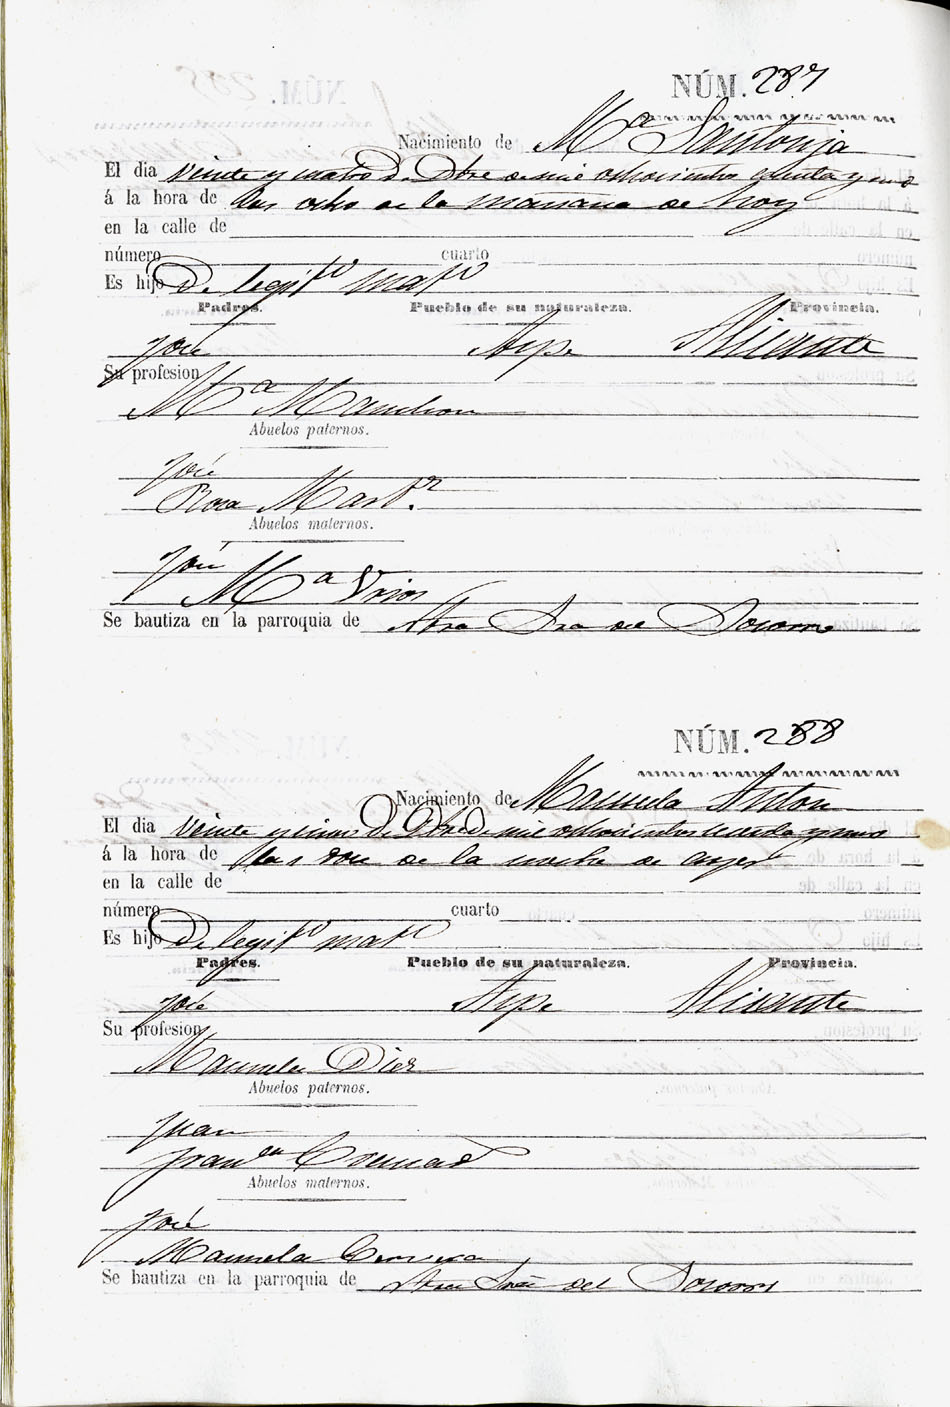 NÚM. 287
Nacimiento de Mª Santonja
El dia veinte y cuatro de Obre de mil ochocientos y uno
á la hora de las ocho de la mañana de hoy
en la calle de
número cuarto
Es hijo De legitº matº
Padres. Pueblo de su naturaleza. Provincia.
José Aspe Alicante
Su profesion
Mª Manchon
Abuelos paternos.
José
Rosa Martz.
Abuelos maternos.
José
Mª
Se bautiza en la parroquia de Ntra Sra del Socorro
NÚM. 288
Nacimiento de Manuela Anton
El dia veinte y cinco De Obre De mil ochocientos y uno
á la hora de las doce de la noche de ayer
en la calle de
número cuarto
Es hijo De legitº matº
Padres. Pueblo de su naturaleza. Provincia.
José Aspe Alicante
Su profesion
Manuela Diez
Abuelos paternos.
Juan
Franca
Abuelos maternos.
José
Manuela
Se bautiza en la parroquia de Ntra Sra del Socorro